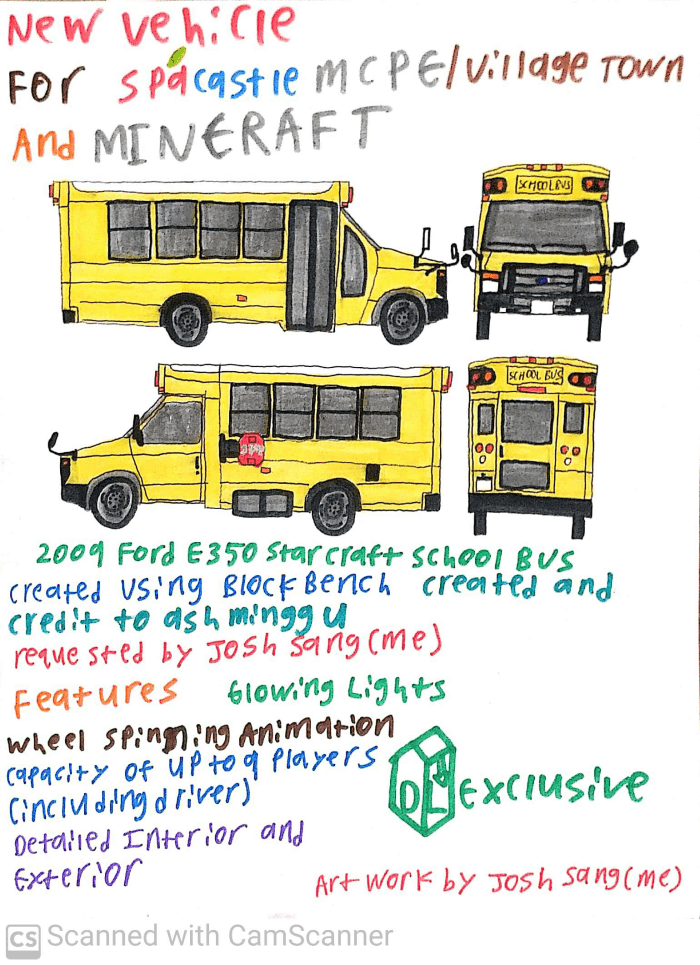 New vehicle
For spacastle MCPE/village Town
And MINERAFT
SCHOOL BUS
SCHOOL BUS
STOP
2009 Ford E350 Starcraft school BUS
created Using BlockBench created and
credit to ash minggu
requested by Josh sang (me)
Features Glowing Lights
wheel spinning Animation
capacity of up to 9 Players
(including driver)
Detailed Interior and
Exterior
DL Exclusive
Art work by Josh sang (me)
CS Scanned with CamScanner